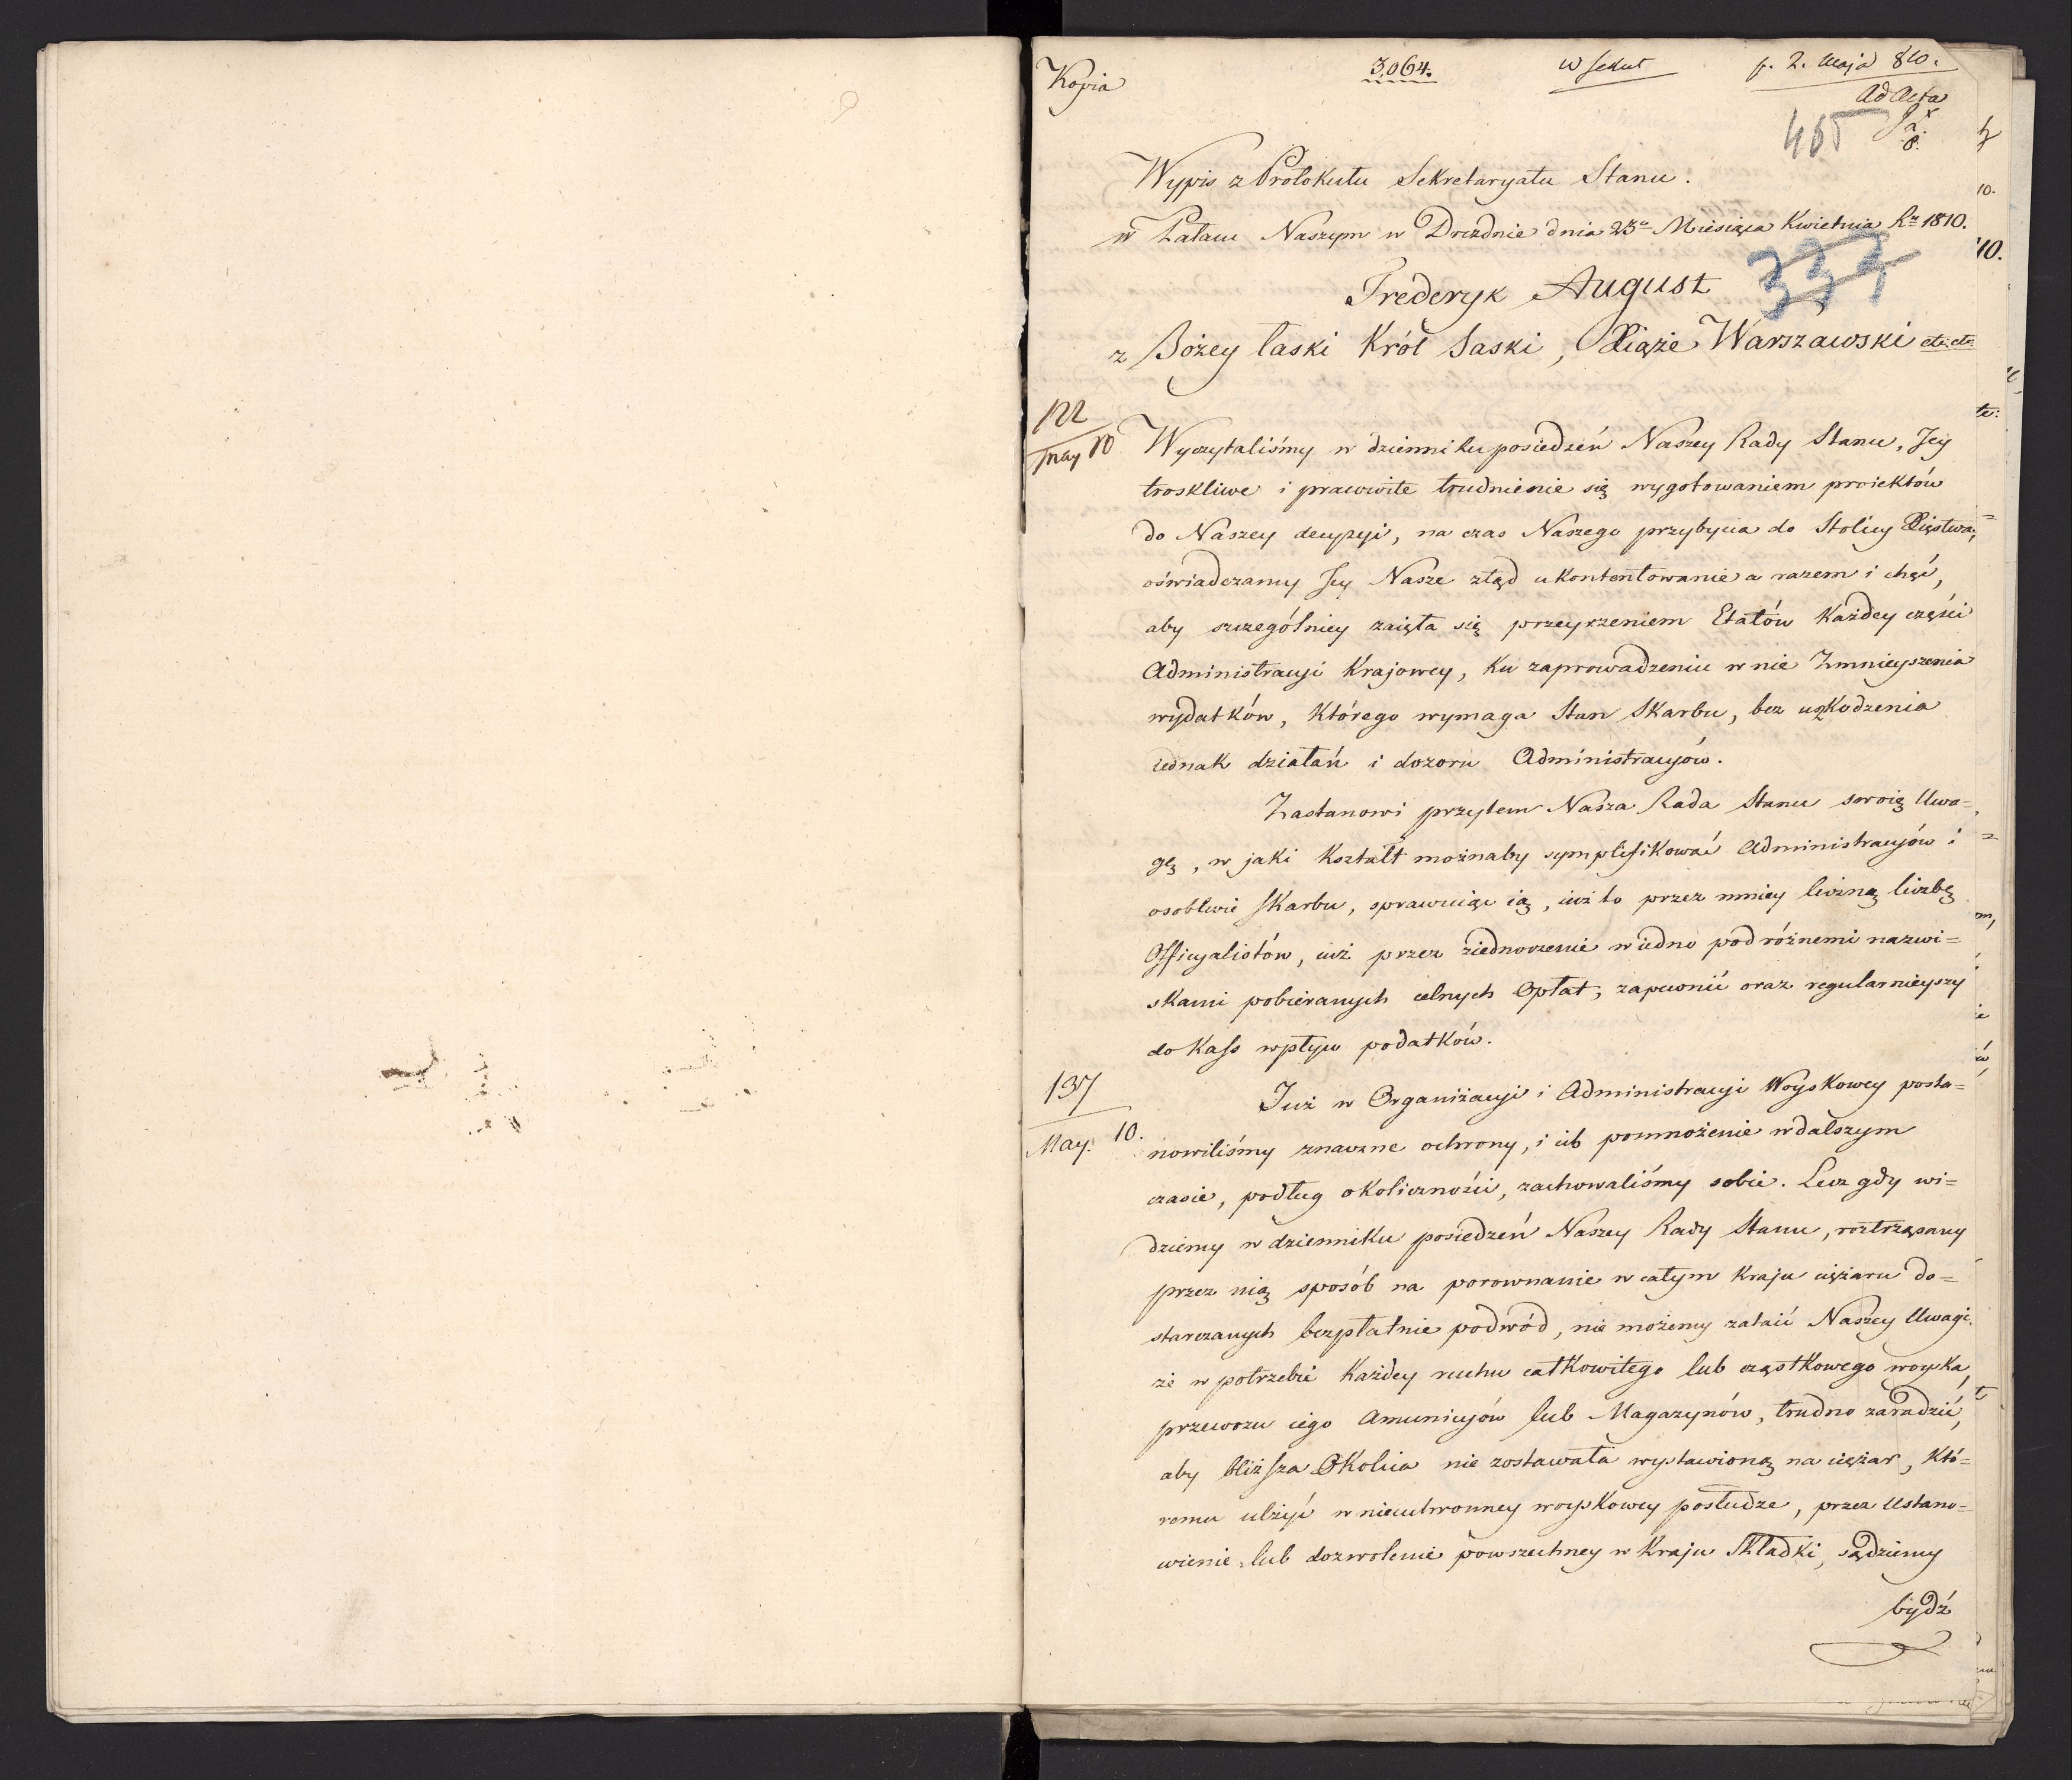 Kopia
3,064.
w Sekut
p. 2. Maja 810.
Ad Acta
465
Wypis z Protokułu Sekretaryatu Stanu.
w Pałacu Naszym w Dreźdnie dnia 23º Miesiąca Kwietnia Rº 1810.
333
Frederyk August
z Bożey łaski Król Saski, Xiąże Warszawski etc: etc.
122
may 10
Wyczytaliśmy w dzienniku posiedzeń Naszey Rady Stanu, Jey
troskliwe i pracowite trudnienie się wygotowaniem proiektów
do Naszey decyzyi, na czas Naszego przybycia do Stolicy Xięstwa,
oświadczamy Jey Nasze ztąd ukontentowanie a razem i chęć,
aby szczególniey zaięła się przeyrzeniem Etatów każdey części
Administracyi Krajowey, ku zaprowadzeniu w nie Zmnieyszenia
wydatków, którego wymaga Stan Skarbu, bez uszkodzenia
iednak działań i dozoru Administracyów.
Zastanowi przytem Nasza Rada Stanu swoię Uwa=
gę, w jaki kształt możnaby symplifikować Administracyów i
osobliwie Skarbu, sprawuiąc ią, iuż to przez mniey liczną liczbę
Officyalistów, iuż przez ziednoczenie w iedno pod różnemi nazwi=
skami pobieranych celnych Opłat, zapewnić oraz regularnieyszy
do Kass wpływ podatków.
137
May. 10.
Już w Organizacyi i Administracyi Woyskowey posta=
nowiliśmy znaczne ochrony, i ich pomnożenie w dalszym
czasie, podług okoliczności, zachowaliśmy sobie. Lecz gdy wi=
dziemy w dzienniku posiedzeń Naszey Rady Stanu, roztrząsany
przez nią sposób na porownanie w całym kraju ciężaru do=
starczanych bezpłatnie podwód, nie możemy zataić Naszey Uwagi.
że w potrzebie każdey ruchu całkowitego lub cząstkowego woyska,
przewozu iego Amunicyów lub Magazynów, trudno zaradzić,
aby bliższa Okolica nie zostawała wystawioną na ciężar, któ=
remu ulżyć w nieuchronney woyskowey posłudze, przez Ustano=
wienie lub dozwolenie powszechney w Kraju Składki, sądziemy
bydź